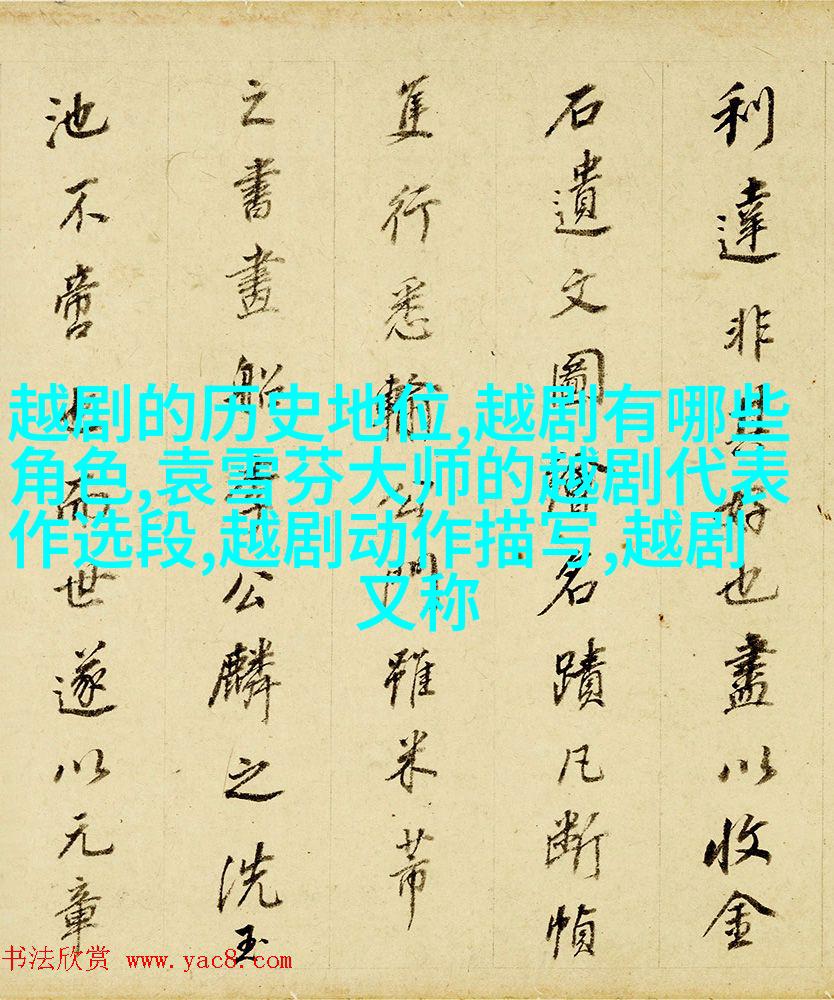 利達非其好也盡以收金
石遺文圖名蹟凡斷幀
隻行悉輸公門雖米芾
之書畫船李公麟之洗玉
池不啻而世遂以元章
越剧的历史地位,越剧有哪些
角色,袁雪芬大师的越剧代表
作选段,越剧动作描写,越剧
又称
书法欣赏 www.yac8.com